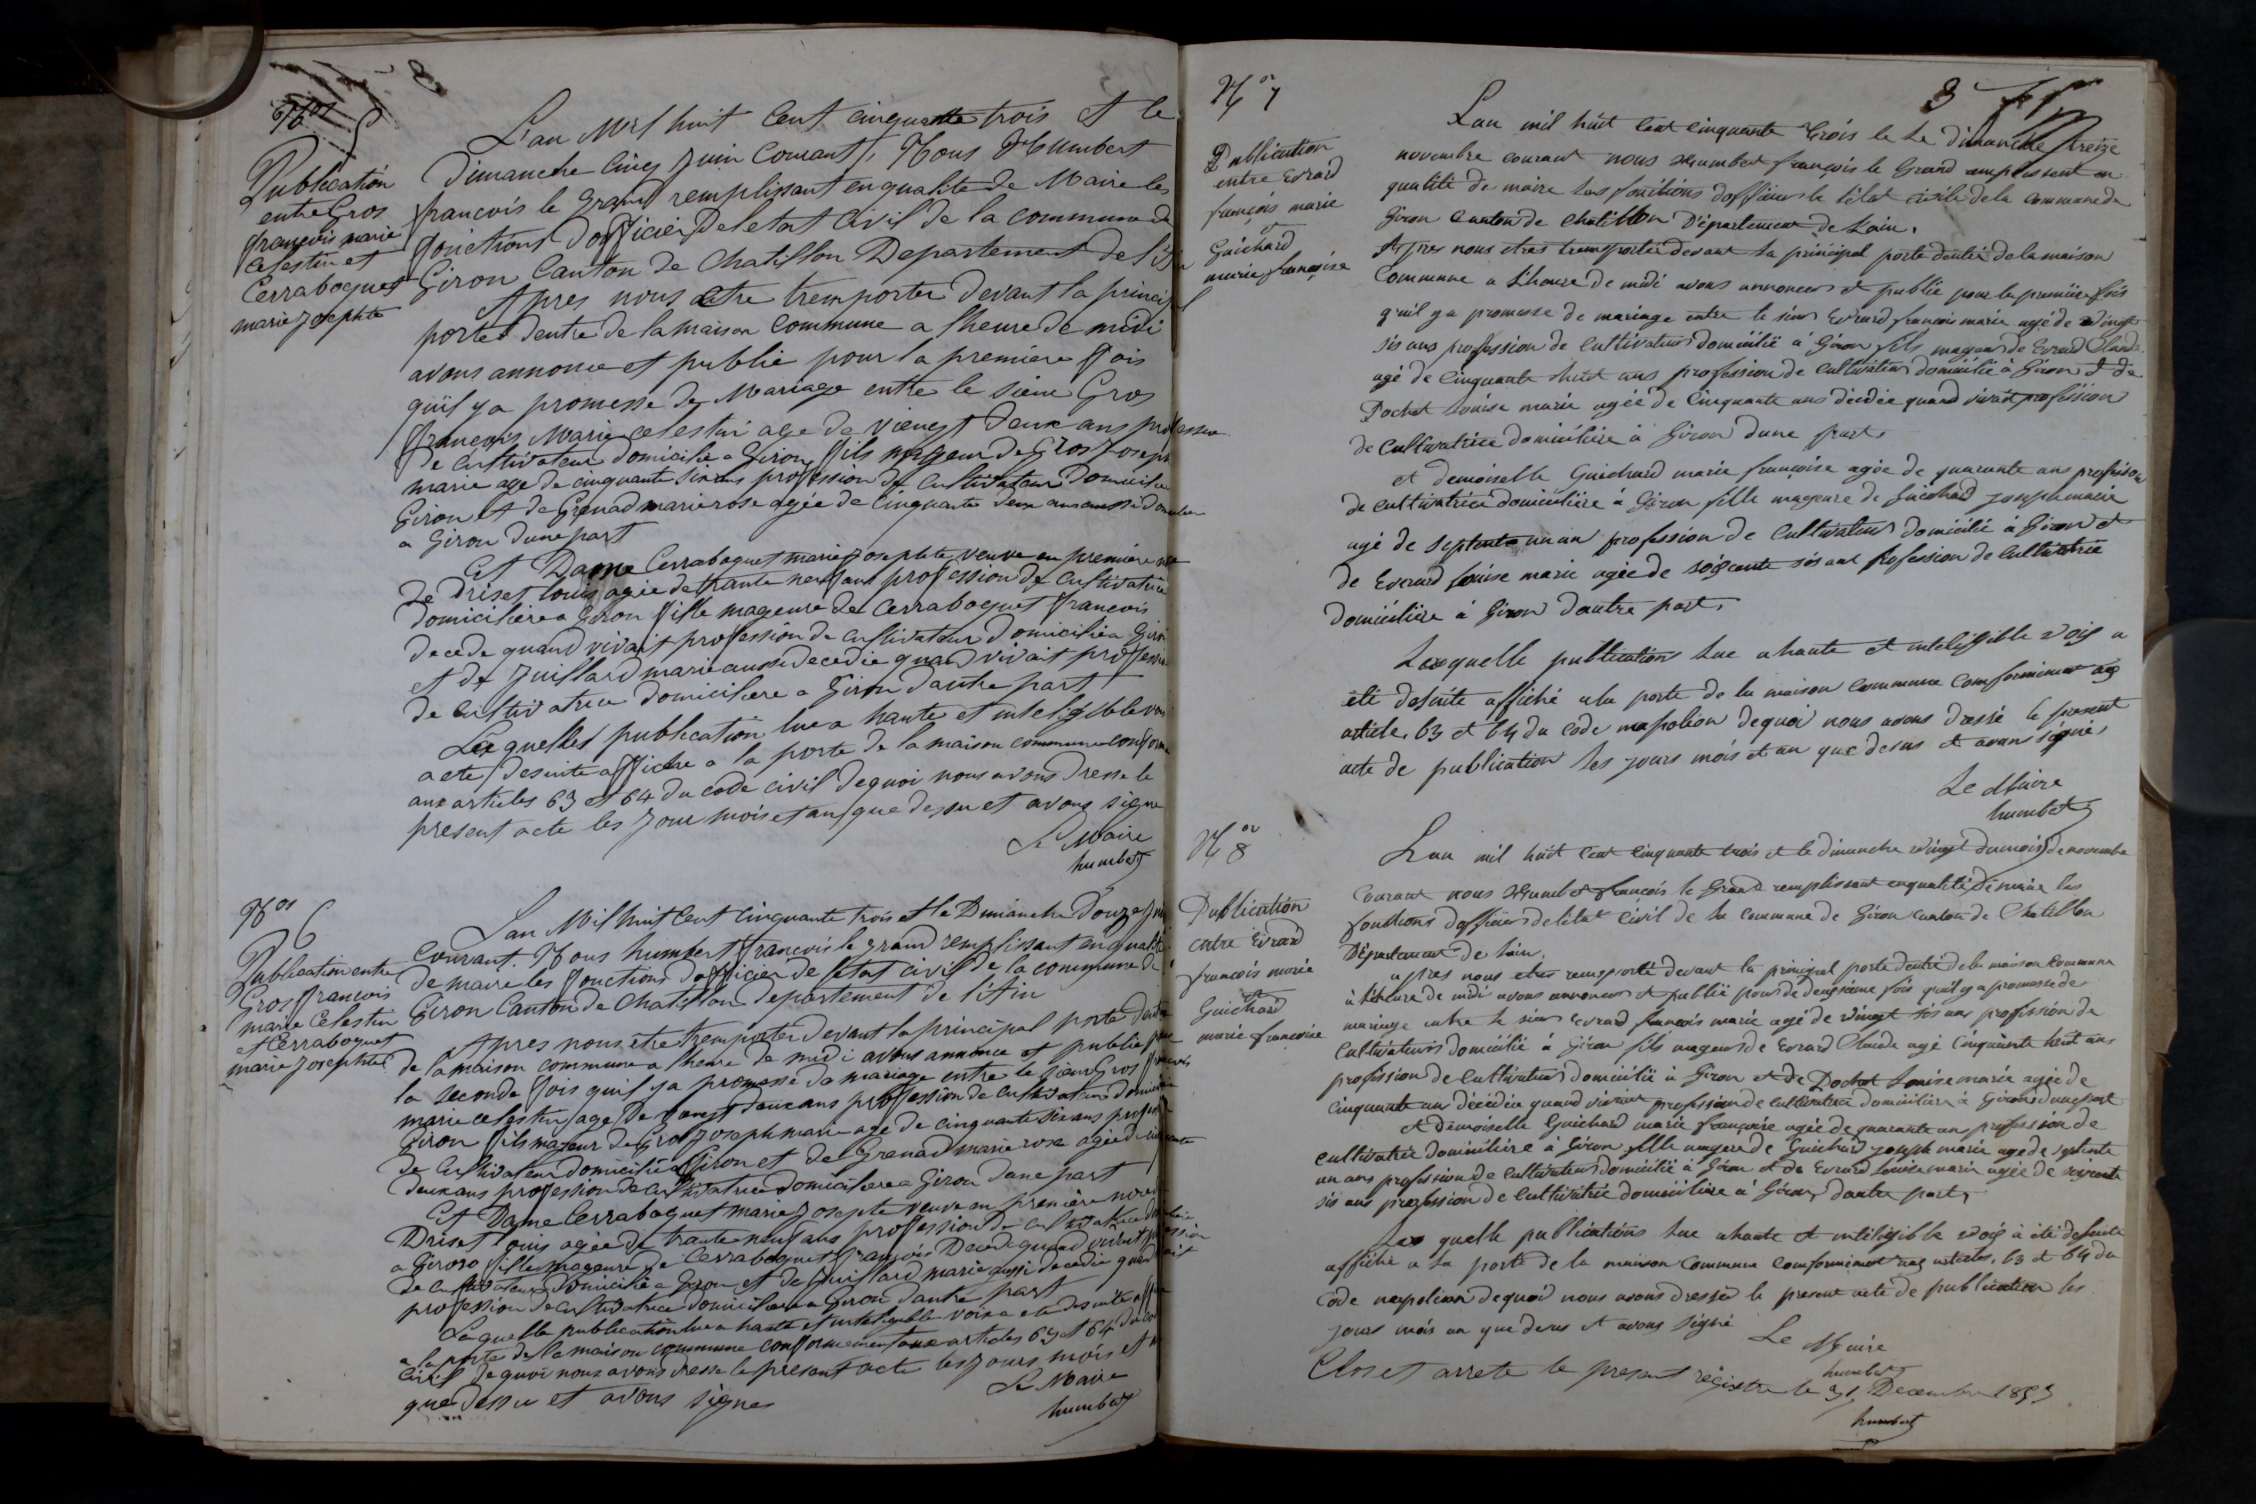 5
Publication
entre Gros
françois marie
Celestin et
Cerraboquet
marie josephte
L'an Mil huit Cent cinquante trois et le
dimanche Cinq Juin Courant, Nous Humbert
francois le Grand remplissant en qualite de Maire les
fonctions dofficier Deletat Civil de la commune de
Giron Canton de Chatillon Departement de l'Ain
Apres nous etre tremporter devant la principal
porte dentre de la maison Commune a lheure de midi
avons annonce et publie pour la premiere fois
quil y a promesse de Mariage entre le sieur Gros
francois Marie celestin age de viengt deux ans profession
de cultivateur domicilie a Giron fils mageur de Gros Joseph
marie age de cinquante six ans profession de cultivateur domicilie
Giron et de Grenad marie rose agée de Cinquante deux ans aussi
a Giron dune part
Et Dame Cerraboquet marie josephte veuve en premiere
de Driset Louis agée de trante neuf ans profession de cultivatrice
domicilière a Giron fille mageure de Cerraboquet francois
decede quand vivait profession de cultivateur domicilie a Giron
et de Juillard marie aussi decedie quand vivait profession
de cultivatrice domiciliere a Giron dautre part
Laquelles publication lue a haute et inteligible voix
a ete desuite affiche a la porte de la maison commune
aux articles 63 et 64 du code civil dequoi nous avons dresse le
present acte les jour mois et an que dessu et avons signe
Le Maire
humbert
Nos 6
Publication entre
Gros francois
marie Celestin
et Cerraboquet
marie josephte
Lan Mil huit Cent Cinquante trois et le Dimanche Douze Juin
Courant. Nous humbert francois le grand remplissant en qualite
de maire les fonctions dofficier de letat civil de la commune de
Giron Canton de Chatillon departement de l'Ain
Apres nous etre tremporter devant la principal porte dentre
de la maison commune a lheure de midi avons annonce et publie pour
la seconde fois quil y a promesse de mariage entre le sieur Gros francois
marie celestin age de vangt deux ans profession de cultivateur
Giron fils mageur de Gros joseph marie age de cinquante six ans profession
de Cultivateur domicilie a Giron et de Grenad marie rose agée de cinquante
deux ans profession de cultivatrice domiciliere a Giron dune part
Et Dame Cerraboquet marie Josephte veuve en premiere
Driset Louis agée de trante neuf ans profession de cultivatrice
a Giron fille mageure de Cerraboquet francois Decede quand vivait profession
de cultivateur domicilie a Giron et de Juillard marie aussi decedie quand
profession de cultivatrice domiciliere a Giron dautre part
Laquelle publication lue a haute et inteligible voix a ete desuite
a la porte de la maison commune conformement aux articles 63 et 64 du
civil de quoi nous avons dresse le present acte les jours mois et
que dessu et avons signe
Le Maire
humbert
No 7
3
Publication
entre Evrard
françois marie
et
Guichard
marie françoise
Lan mil huit cent cinquante trois le Le dimanche treize
novembre courant nous Humbert françois le Grand remplissent en
qualité de maire les fonctions dofficier de létat civile de la commune de
Giron Canton de Chatillon Département de Lain.
Après nous etres transportée devant la principal porte dentré de la maison
Commune a Lheure de midi avons annoncer et publie pour la première fois
qu'il y a promesse de mariage entre le sieur Evrard francois marie agé de vingt
sis ans profession de Cultivateur domicilié à Giron fils mageur de Evrard Claude
agé de Cinquante huit ans profession de cultivateur domicilié à Giron et de
Pochet Louise marie agée de Cinquante ans décédée quand vivait profession
de Cultivatrice domicilière à Giron dune part.
et demoiselle Guichard marie françoise agée de quarante ans profession
de cultivatrice domicilière à Giron fille mageure de Guichard joseph marie
agé de septente un an profession de Cultivateur domicilié à Giron et
de Evrard Louise marie agée de soixante sis ans profession de Cultivatrice
domicilière à Giron dautre part.
Lexquelle publication lue a haute et inteligible voix a
été desuite affiché a la porte de la maison Commune conformément aux
article 63 et 64 du code napoléon dequoi nous avons dressé le présent
acte de publication les jours mois et an que desus et avons signé.
Le Maire
humbert
No 8
Publication
entre Evrard
françois marie
et
Guichard
marie françoise
Lan mil huit cent cinquante trois et le dimanche vingt du mois de novembre
Courant nous Humbert françois le Grand remplissant en qualité de maire les
fonctions dofficier de letat Civil de la commune de Giron canton de Chatillon
Département de Lain.
apres nous etres transporté devant la principal porte dentré de la maison Commune
à Lheure de midi avons annoncer et publié pour la deuxsième fois quil y a promesse de
mariage entre le sieur Evrard françois marie agé de vingt sis ans profession de
Cultivateur domicilié à Giron fils mageur de Evrard Claude agé Cinquante huit ans
profession de Cultivateur domicilié à Giron et de Pochet Louise marie agée de
Cinquante ans décédée quand vivait profession de Cultivatrice domicilière à Giron dune part
et Démoiselle Guichard marie françoise agée de quarante ans profession de
cultivatrice domicilière à Giron fille mageure de Guichard joseph marie agé de septente
un ans profession de Cultivateur domicilié à Giron et de Evrard Louise marie agée de soixante
sis ans profession de Cultivatrice domicilière à Giron, dautre part,
Lex quelle publications lue ahaute et inteligible voix à été desuite
affiché a la porte de la maison Commune conformément aux articles 63 et 64 du
Code napoléon dequoi nous avons dressée le présent acte de publication les
jours mois an que desus et avons signé
Le Maire
humbert
Clos et arrete le present régistre le 31 Decembre 1853
humbert